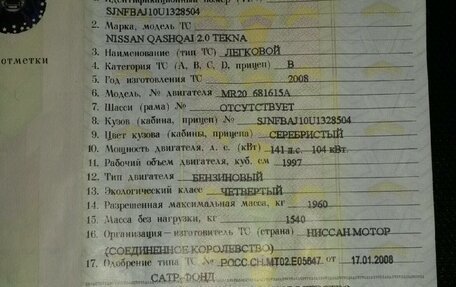 1. Идентификационный номер
SJNFBAJ10U1328504
2. Марка, модель ТС
NISSAN QASHQAI 2.0 TEKNA
3. Наименование (тип ТС) ЛЕГКОВОЙ
отметки
4. Категория ТС (A, B, C, D, прицеп) B
5. Год изготовления ТС 2008
6. Модель, № двигателя MR20 681615A
7. Шасси (рама) № ОТСУТСТВУЕТ
8. Кузов (кабина, прицеп) № SJNFBAJ10U1328504
9. Цвет кузова (кабины, прицепа) СЕРЕБРИСТЫЙ
10. Мощность двигателя, л. с. (кВт) 141 л.с. 104 кВт.
11. Рабочий объем двигателя, куб. см 1997
12. Тип двигателя БЕНЗИНОВЫЙ
13. Экологический класс ЧЕТВЕРТЫЙ
14. Разрешенная максимальная масса, кг 1960
15. Масса без нагрузки, кг 1540
16. Организация — изготовитель ТС (страна) НИССАН МОТОР
(СОЕДИНЕННОЕ КОРОЛЕВСТВО)
17. Одобрение типа ТС № РОСС CH.MT02.E05647 от 17.01.2008
САТР-ФОНД